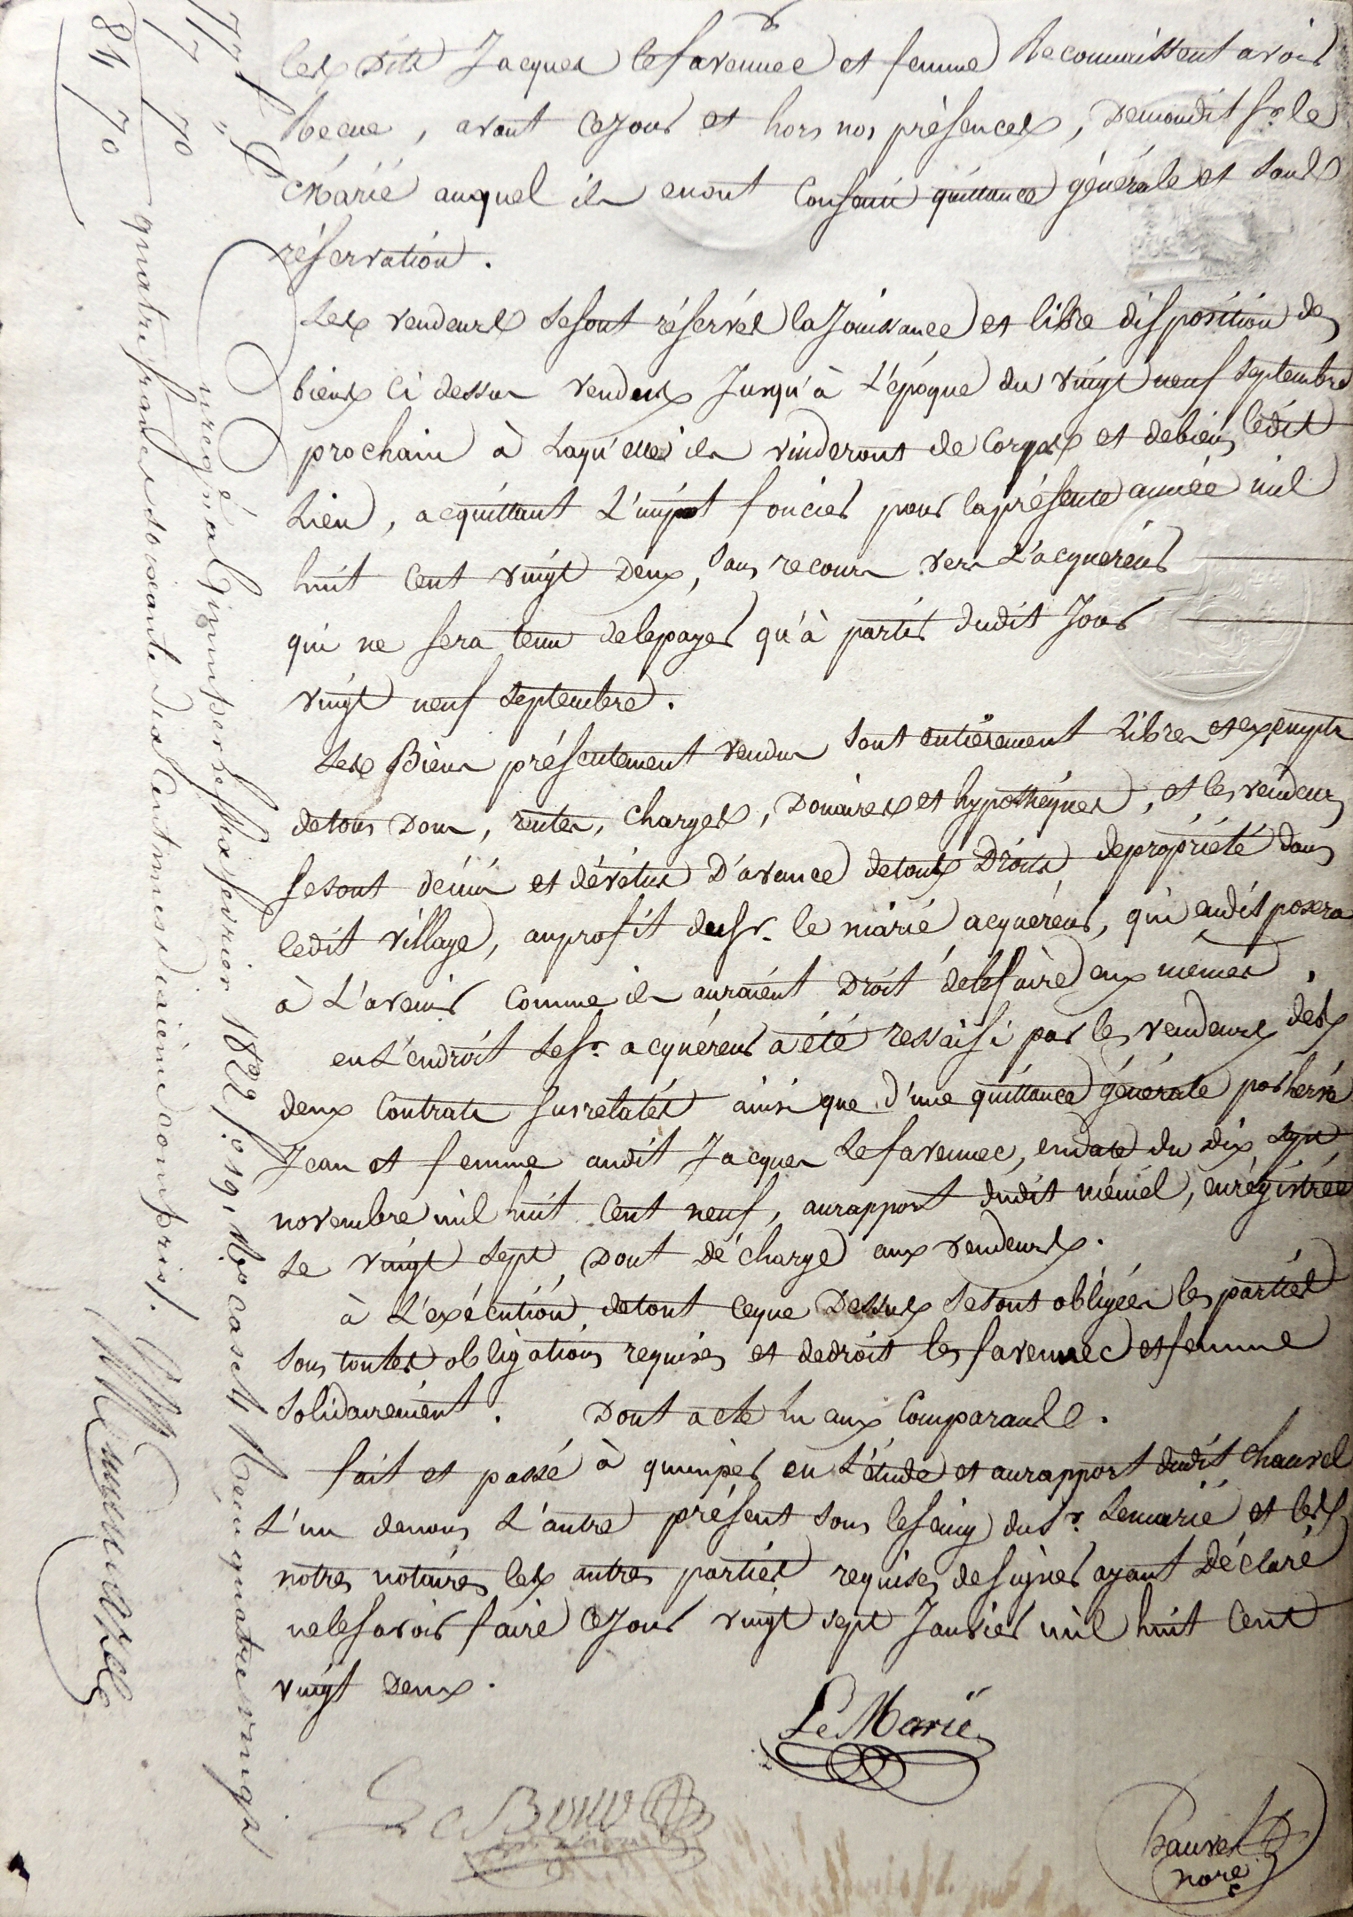 lesdits Jacques lefavennec et femme Reconnaissent avoir
Recue, avant cejour et hors nos présences, Demondit Sr. le
Marié auquel ils enont Consenti quittance générale et sans
réservation.
Les vendeurs Sesont réservés la Jouissance et libre disposition des
biens ci dessus vendus Jusqu'à L'époque du vingt neuf Septembre
prochain à Laqu'elle ils vinderont de Corps et debiens ledit
Lieu, acquittant L'impot foncier pour laprésente année mil
huit Cent vingt Deux, Sans recours vers L'acquéreur
qui ne Sera tenu delepayer qu'à partir dudit Jour
vingt neuf Septembre.
Les Biens présentement vendus Sont entièrement Libres et exempts
detous Dons, rentes, Charges, Douaires et hypothèques, et les vendeurs
Sesont démis et dévétus D'avance detous Droits depropriété dans
ledit village, auprofit duSr. le marié acquéreur, qui endisposera
à L'avenir Comme ils auraient Droit delefaire eux mêmes,
enL'endroit LeSr. acquéreur a été ressaisi par les vendeurs des
deux Contrats Susrelatés ainsi que D'une quittance générale par hervé
Jean et femme audit Jacques Lefavennec, endate du Dix Sept
novembre mil huit Cent neuf, aurapport dudit méniel, enrégistrée
Le vingt Sept, Dont décharge aux vendeurs.
à L'exécution detout ceque Dessus Sesont obligées les parties
Sous toutes obligations requises et dedroit les favennec et femme
Solidairement. Dont acte lu aux Comparants.
fait et passé à quimper en L'étude et aurapport dudit Chauvel
L'un denous L'autre présent Sous leSeing du Sr. Lemarié et les
notres notaires les autres parties requises designer ayant Déclaré
neleSavoir faire CeJour vingt sept Janvier mil huit Cent
vingt Deux.
Le Marié
Chauvel
nore
77 f " c
7 70
84 70
enregistré à Quimper le fevrier 1822 fo. 19, Ro. case 4 Reçu quatrevingt
quatre francs soixante dix centimes dixième compris.